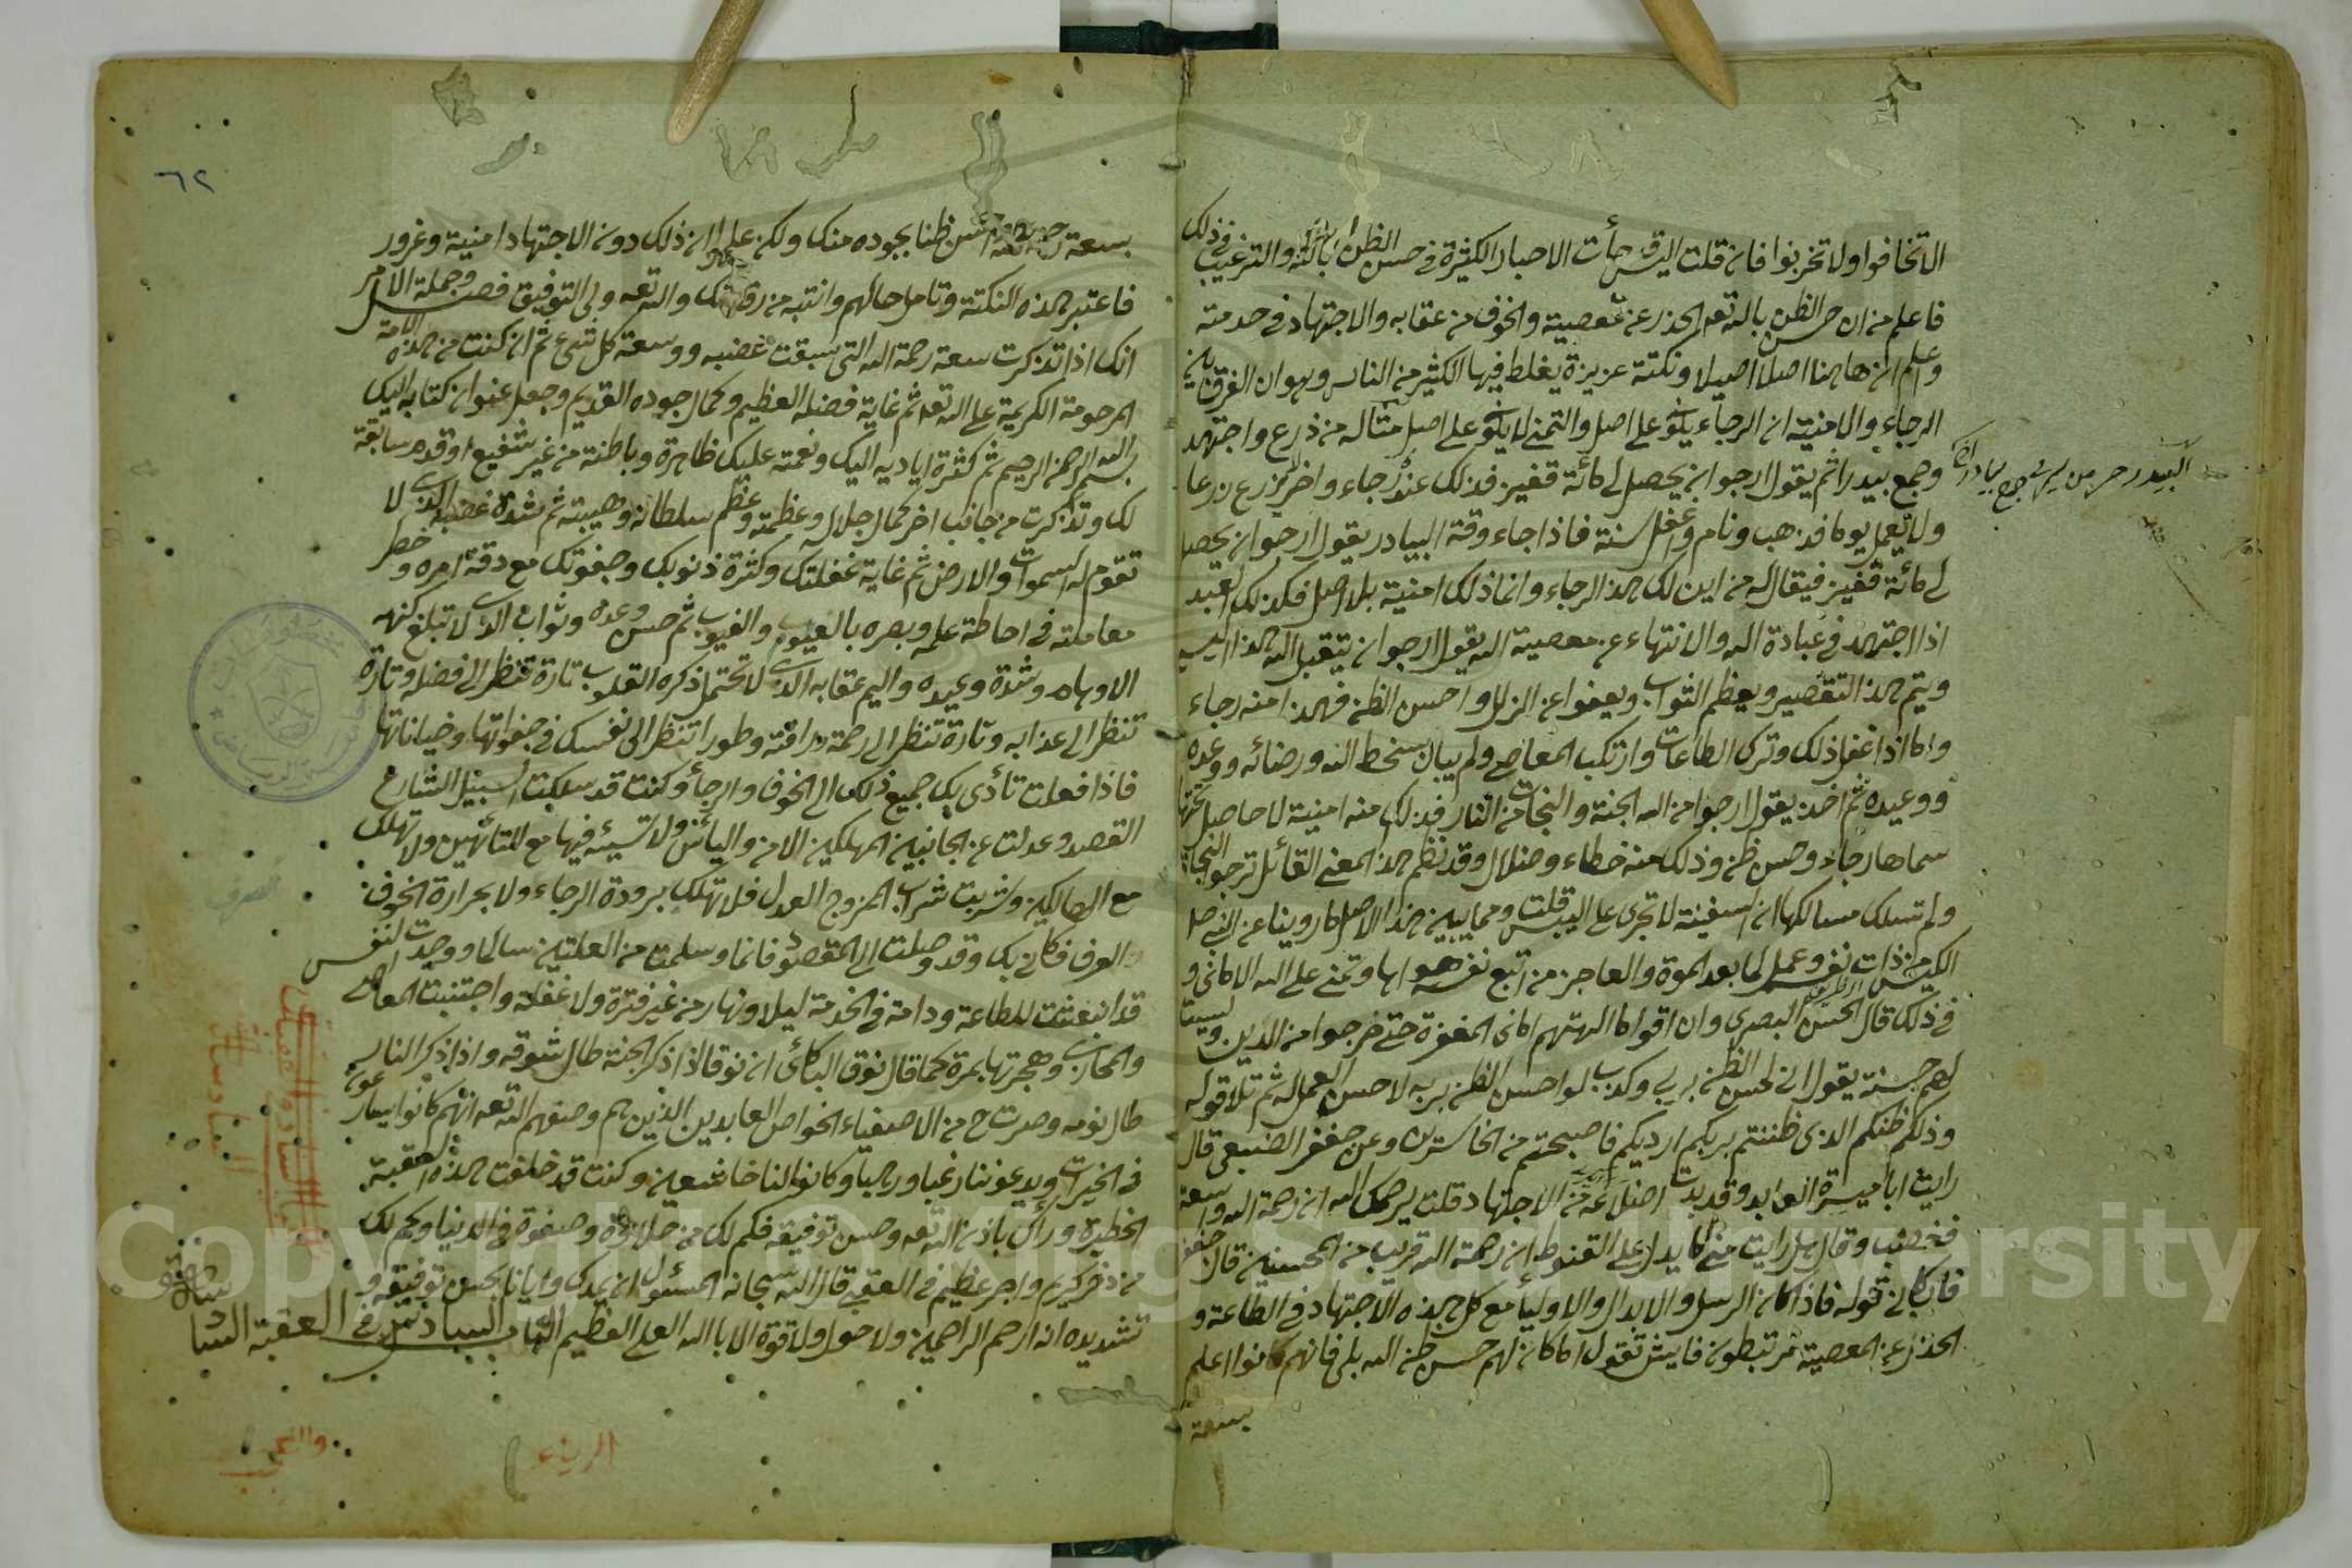 الا تخافوا ولا تحزنوا فان قلت اليس جأت الاخبار الكثيرة في حسن الظن بالله والترغيب في ذلك
فاعلم من ان حسن الظن بالله تعه الحذر عن معصية والخوف من عقابه والاجتهاد في خدمته
واعلم ان هاهنا اصلا اصيلا ونكتة عزيزة يغلط فيها الكثير من الناس وهو ان الفرق بين
الرجاء والامنية ان الرجاء يكون على اصل والتمني لا يكون على اصل مثاله من زرع واجتهد
وجمع بيدرا ثم يقول ارجوا ان يحصل لي مائة قفيز فذلك عنه رجاء واخر لم يزرع زرعا
ولا يعمل يوما فذهب ونام واغفل سنة فاذا جاء وقة البيادر يقول ارجوا ان يحصل
لي مائة قفيز فيقال له من اين لك هذا الرجاء وانما ذلك امنية بلا اصل فكذلك العبد
اذا اجتهد في عبادة الله والانتهاء عن معصية الله يقول ارجوا ان يتقبل الله هذا اليسير
ويتم هذا التقصير ويعظم الثواب ويعفوا عن الزلل واحسن الظن فهذا منه رجاء
واما اذا غفل ذلك وترك الطاعات وارتكب المعاصي ولم يبال سخط الله ورضائه ووعده
ووعيده ثم اخذ يقول ارجوا من الله الجنة والنجات من النار فذلك منه امنية لا حاصل تحتها
سماها رجاء وحسن ظن وذلك منه خطاء وضلال وقد نظم هذا المعني القائل ترجوا النجاة
ولم تسلك مسالكها ان السفينة لا تجري على اليبس قلت ومما يبين هذا الاصل ما روينا عن النبي صل
الكيس من دان نفسه وعمل لما بعد الموة والعاجز من اتبع نفسه هواها وتمني على الله الاماني و
في ذلك قال الحسن البصري وان اقواما الهتهم اماني المغفرة حتى خرجوا من الدين وليست
لهم حسنة يقول اني لحسن الظن بربي وكذب لو احسن الظن بربه لاحسن العمل له ثم تلا قوله
وذلكم ظنكم الذي ظننتم بربكم ارديكم فاصبحتم من الخاسرين وعن جعفر الضبعي قال
رايت ابا ميسرة العابد وقد بدت اضلاعه من الاجتهاد قلت يرحمك الله ان رحمة الله واسعة
فغضب وقال هل رايت مني ما يدل على القنوط ان رحمة الله قريب من المحسنين قال جعفر
فابكاني قوله فاذا كان الرسل والابدال والاوليأ مع كل هذه الاجتهاد في الطاعة و
الحذر عن المعصية مرتبطون فايش تقول اما كان لهم حسن ظن الله بلى فانهم كانوا اعلم
بسعة
٦٢
بسعة رحمة الله واحسن ظنا بجوده منك ولكن علموا ان ذلك دون الاجتهاد امنية وغرور
فاعتبر هذه النكتة وتامل حالهم وانتبه من رقدتك والله تعه ولي التوفيق فصل وجملة الامر
انك اذا تذكرت سعة رحمة الله التي سبقت غضبه ووسعة كل شيء ثم ان كنت من هذه الامة
المرحومة الكريمة على الله تعه ثم غاية فضله العظيم وكمال جوده القديم وجعل عنوان كتابه اليك
بسم الله الرحمن الرحيم ثم كثرة اياديه اليك ونعمته عليك ظاهرة وباطنة من غير شفيع او قدم سابقة
لك وتذكرت من جانب اخر كمال جلاله وعظمته وعظم سلطانه وهيبته ثم شدة غضبه الذي لا
تقوم له السموات والارض ثم غاية غفلتك وكثرة ذنوبك وجفوتك مع دقة امره وخطر
معاملته في احاطة علمه وبصره بالعيوب والغيوب ثم حسن وعده وثوابه الذي لا تبلغ كنهه
الاوهام وشدة وعيده واليم عقابه الذي لا تحتمل ذكره القلوب تارة تنظر الى فضله وتارة
تنظر الى عذابه وتارة تنظر الى رحمة ورافته وطورا تنظر الى نفسك في جفواتها وخياناتها
فاذا فعلت تأدى بك جميع ذلك الى الخوف والرجأ وكنت قد سلكت السبيل الشارع
القصد وعدلت عن الجانبين المهلكين الامن واليأس ولا تسيئه فيها مع التائهين ولا تهلك
مع الهالكين وشربت شراب الممزوج العدل فلا تهلك ببرودة الرجاء ولا بحرارة الخوف
فكاني بك وقد وصلت الى المقصود فانما وسلمت من العلتين سالما ووجدت النفس
قد انبعثت للطاعة ودامة في الخدمة ليلا ونهار من غير فترة ولا غفلة واجتنبت المعاصي
والمخازي وهجرتها بمرة كما قال نوف البكائي ان نوفا اذا ذكر الجنة طال شوقه واذا ذكر النار
طال نومه وصرت ح من الاصفياء الخواص العابدين الذين هم وصفهم الله تعه انهم كانوا يسارعون
في الخيرات ويدعوننا رغبا ورهبا وكانوا لنا خاشعين وكنت قد خلفت هذه العقبة
الخطيرة وراك باذن الله تعه وحسن توفيقه فكم لك من حلاوة وصفوة في الدنيا وكم لك
من ذخر كريم واجر عظيم في العقبي قال الله سبحانه المسئول ان يمدك وايانا بحسن توفيقه و
تشديده انه ارحم الراحمين ولا حول ولا قوة الا بالله العلي العظيم الباب السادس في العقبة السا
والعجب
الرياء
Copyright © King Saud University